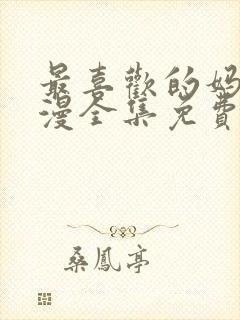 最喜歡的媽
漫全集免費
桑鳳亭